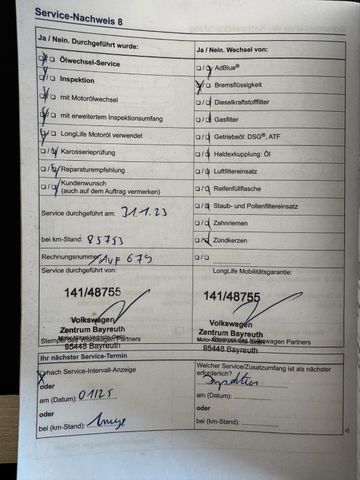 Service-Nachweis 8
Ja / Nein. Durchgeführt wurde:
Ölwechsel-Service
Inspektion
mit Motorölwechsel
mit erweitertem Inspektionsumfang
LongLife Motoröl verwendet
Karosserieprüfung
Reparaturempfehlung
Kundenwunsch
(auch auf dem Auftrag vermerken)
Service durchgeführt am: 31.1.23
bei km-Stand: 85753
Rechnungsnummer:
Service durchgeführt von:
141/48755
Volkswagen
Zentrum Bayreuth
Stempel des Volkswagen Partners
95448 Bayreuth
Ja / Nein. Wechsel von:
AdBlue®
Bremsflüssigkeit
Dieselkraftstofffilter
Gasfilter
Getriebeöl: DSG®, ATF
Haldexkupplung: Öl
Luftfiltereinsatz
Reifenfüllflasche
Staub- und Pollenfiltereinsatz
Zahnriemen
Zündkerzen
LongLife Mobilitätsgarantie:
141/48755
Volkswagen
Zentrum Bayreuth
Stempel des Volkswagen Partners
95448 Bayreuth
Ihr nächster Service-Termin
nach Service-Intervall-Anzeige
oder
am (Datum): 01/25
oder
bei (km-Stand): Anzeige
Welcher Service/Zusatzumfang ist als nächster
erforderlich?
Inspektion
am (Datum):
oder
bei (km-Stand):